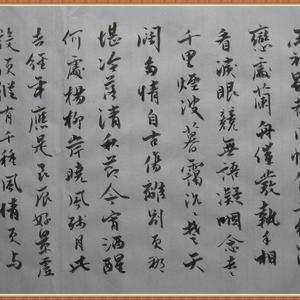 戀處蘭舟催發執手相
看淚眼競無語凝咽念去々
千里煙波暮靄沉々楚天
闊多情自古傷離別更那
堪冷落清秋節今宵酒醒
何處楊柳岸曉風殘月此
去經年應是良辰好景虛
設便縱有千種風情更與